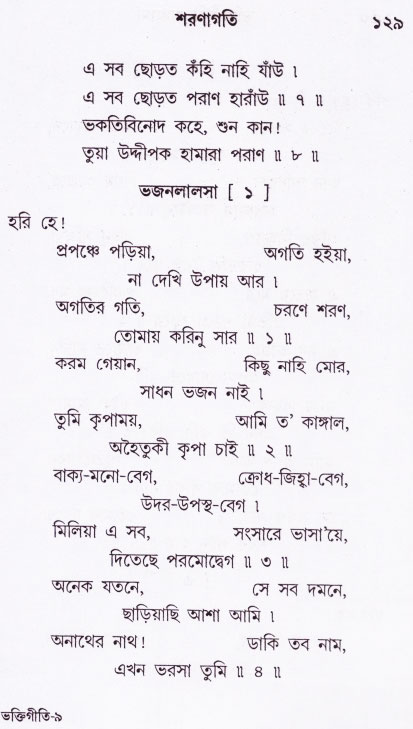 শরণাগতি ১২৯
এ সব ছোড়ত কঁহি নাহি যাঁউ ।
এ সব ছোড়ত পরাণ হারাঁউ ॥ ৭ ॥
ভকতিবিনোদ কহে, শুন কান!
তুয়া উদ্দীপক হামারা পরাণ ॥ ৮ ॥
ভজনলালসা [ ১ ]
হরি হে!
প্রপঞ্চে পড়িয়া, অগতি হইয়া,
না দেখি উপায় আর ।
অগতির গতি, চরণে শরণ,
তোমায় করিনু সার ॥ ১ ॥
করম গেয়ান, কিছু নাহি মোর,
সাধন ভজন নাই ।
তুমি কৃপাময়, আমি ত’ কাঙ্গাল,
অহৈতুকী কৃপা চাই ॥ ২ ॥
বাক্য-মনো-বেগ, ক্রোধ-জিহ্বা-বেগ,
উদর-উপস্থ-বেগ ।
মিলিয়া এ সব, সংসারে ভাসা’য়ে,
দিতেছে পরমোদ্বেগ ॥ ৩ ॥
অনেক যতনে, সে সব দমনে,
ছাড়িয়াছি আশা আমি ।
অনাথের নাথ! ডাকি তব নাম,
এখন ভরসা তুমি ॥ ৪ ॥
ভক্তিগীতি-৯